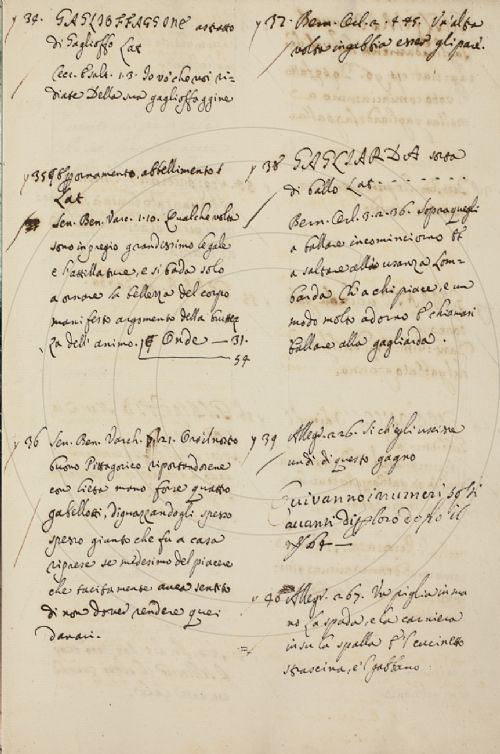 34. GAGLIOFFAGGINE astratto
di Gaglioffo Lat
Cecc. Esalt. 1.3. Io vo' che voi ri-
diate della sua gaglioffaggine
35 Per ornamento, abbellimento
Lat
Sen. Ben. Varc. 1.10. Qualche volta
sono in pregio grandissimo le gale
e l'attillature, e si bada solo
a ornare la bellezza del corpo
manifesto argomento della brutez
za dell'animo. Onde — 31.
54
36 Sen. Ben. Varch. 7.21. Or il nostro
buono Pittagorico riportandosene
con lieta mano forse quattro
gabellotti, dignazzandogli spesso
spesso giunto che fu a casa
riprese se medesimo del piacere
che tacitamente avea sentito
di non dover rendere quei
danari.
37. Bern. Orl. 2. 4. 45. Un'alta
volta in gabbia esser gli pare.
38 GAGLIARDA sorta
di ballo Lat - - - - - - -
Bern. Orl. 3. 2. 36. Sopra quegli
a ballare incominciorno
a saltare alla usanza Lom-
barda Ch'a chi piace, e un
modo molto adorno E' chiamasi
ballare alla gagliarda.
39 Allegr. 226. Si ch'egli uscisse
un dì di questo gagno
Qui vanno i numeri posti
avanti di dopo il
64 —
40 Allegr. 267. Un piglia in ma
no la spada, e la carniera
in su la spalla E'l
strascina, e'l gabbano.